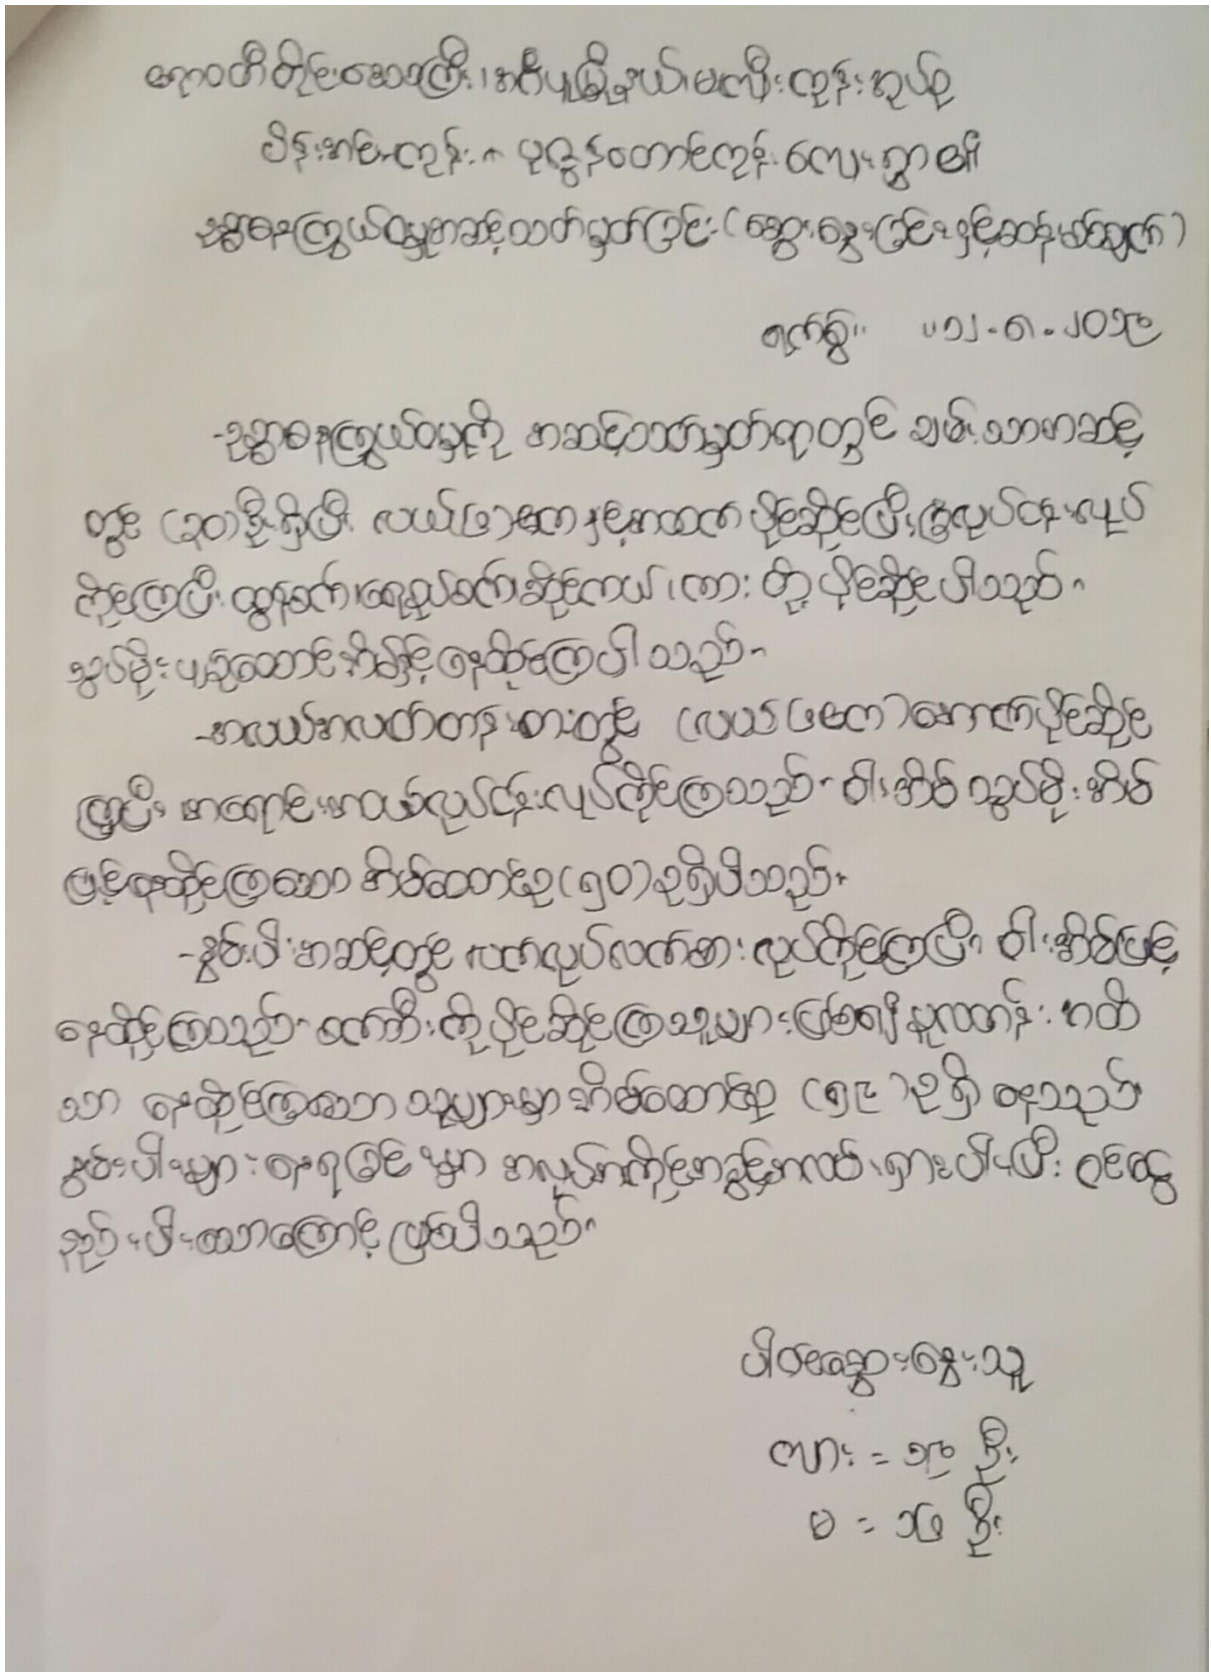 ဧရာဝတီတိုင်းဒေသကြီး၊ အင်္ဂပူမြို့နယ်၊ မကျီးကုန်းအုပ်စု
ပိန်းအင်းကုန်း - ပုဇွန်တောင်ကုန်း ကျေးရွာ၏
ဥစ္စာဓနကြွယ်ဝမှုအဆင့်သတ်မှတ်ခြင်း (ဆွေးနွေးခြင်းနှင့်ဆန်းစစ်ချက်)
ရက်စွဲ။ ။၁၂.၈.၂၀၁၉
-ဥစ္စာဓနကြွယ်ဝမှုကို အဆင့်သတ်မှတ်ရာတွင် ချမ်းသာအဆင့်
တွင် (၃၀)ဦးရှိပြီး လယ်(၁၀)ဧကနှင့်အထက် ပိုင်ဆိုင်ပြီးခြံလုပ်ငန်းလုပ်
ကိုင်ကြပြီး ထွန်စက်၊ ရေစုပ်စက်၊ ဆိုင်ကယ်၊ ကား တို့ ပိုင်ဆိုင်ပါသည်။
သွပ်မိုး ပျဉ်ထောင်အိမ်ဖြင့် နေထိုင်ကြပါသည်။
-အလယ်အလတ်တန်းစားတွင် (လယ်၁၀ဧက)အောက်ပိုင်ဆိုင်
ကြပြီး အရောင်းအဝယ်လုပ်ငန်းလုပ်ကိုင်ကြသည်။ ဝါးအိမ် သွပ်မိုးအိမ်
ဖြင့်နေထိုင်ကြသော အိမ်ထောင်စု(၅၀)ခုရှိပါသည်။
-နွမ်းပါးအဆင့်တွင် လက်လုပ်လက်စား လုပ်ကိုင်ကြပြီး ဝါးအိမ်ဖြင့်
နေထိုင်ကြသည်။ စက်ဘီးကို ပိုင်ဆိုင်ကြသူများဖြစ်၍ မူလတန်းအထိ
သာ နေထိုင်ကြသော သူများမှာ အိမ်ထောင်စု (၅၄)ခုရှိ နေသည်။
နွမ်းပါးများနေရခြင်းမှာ အလုပ်အကိုင်အခွင့်အလမ်း ရှားပါးပြီး ဝင်ငွေ
နည်းပါးသောကြောင့် ဖြစ်ပါသည်။
ပါဝင်ဆွေးနွေးသူ
ကျား = ၁၉ ဦး
မ = ၁၆ ဦး